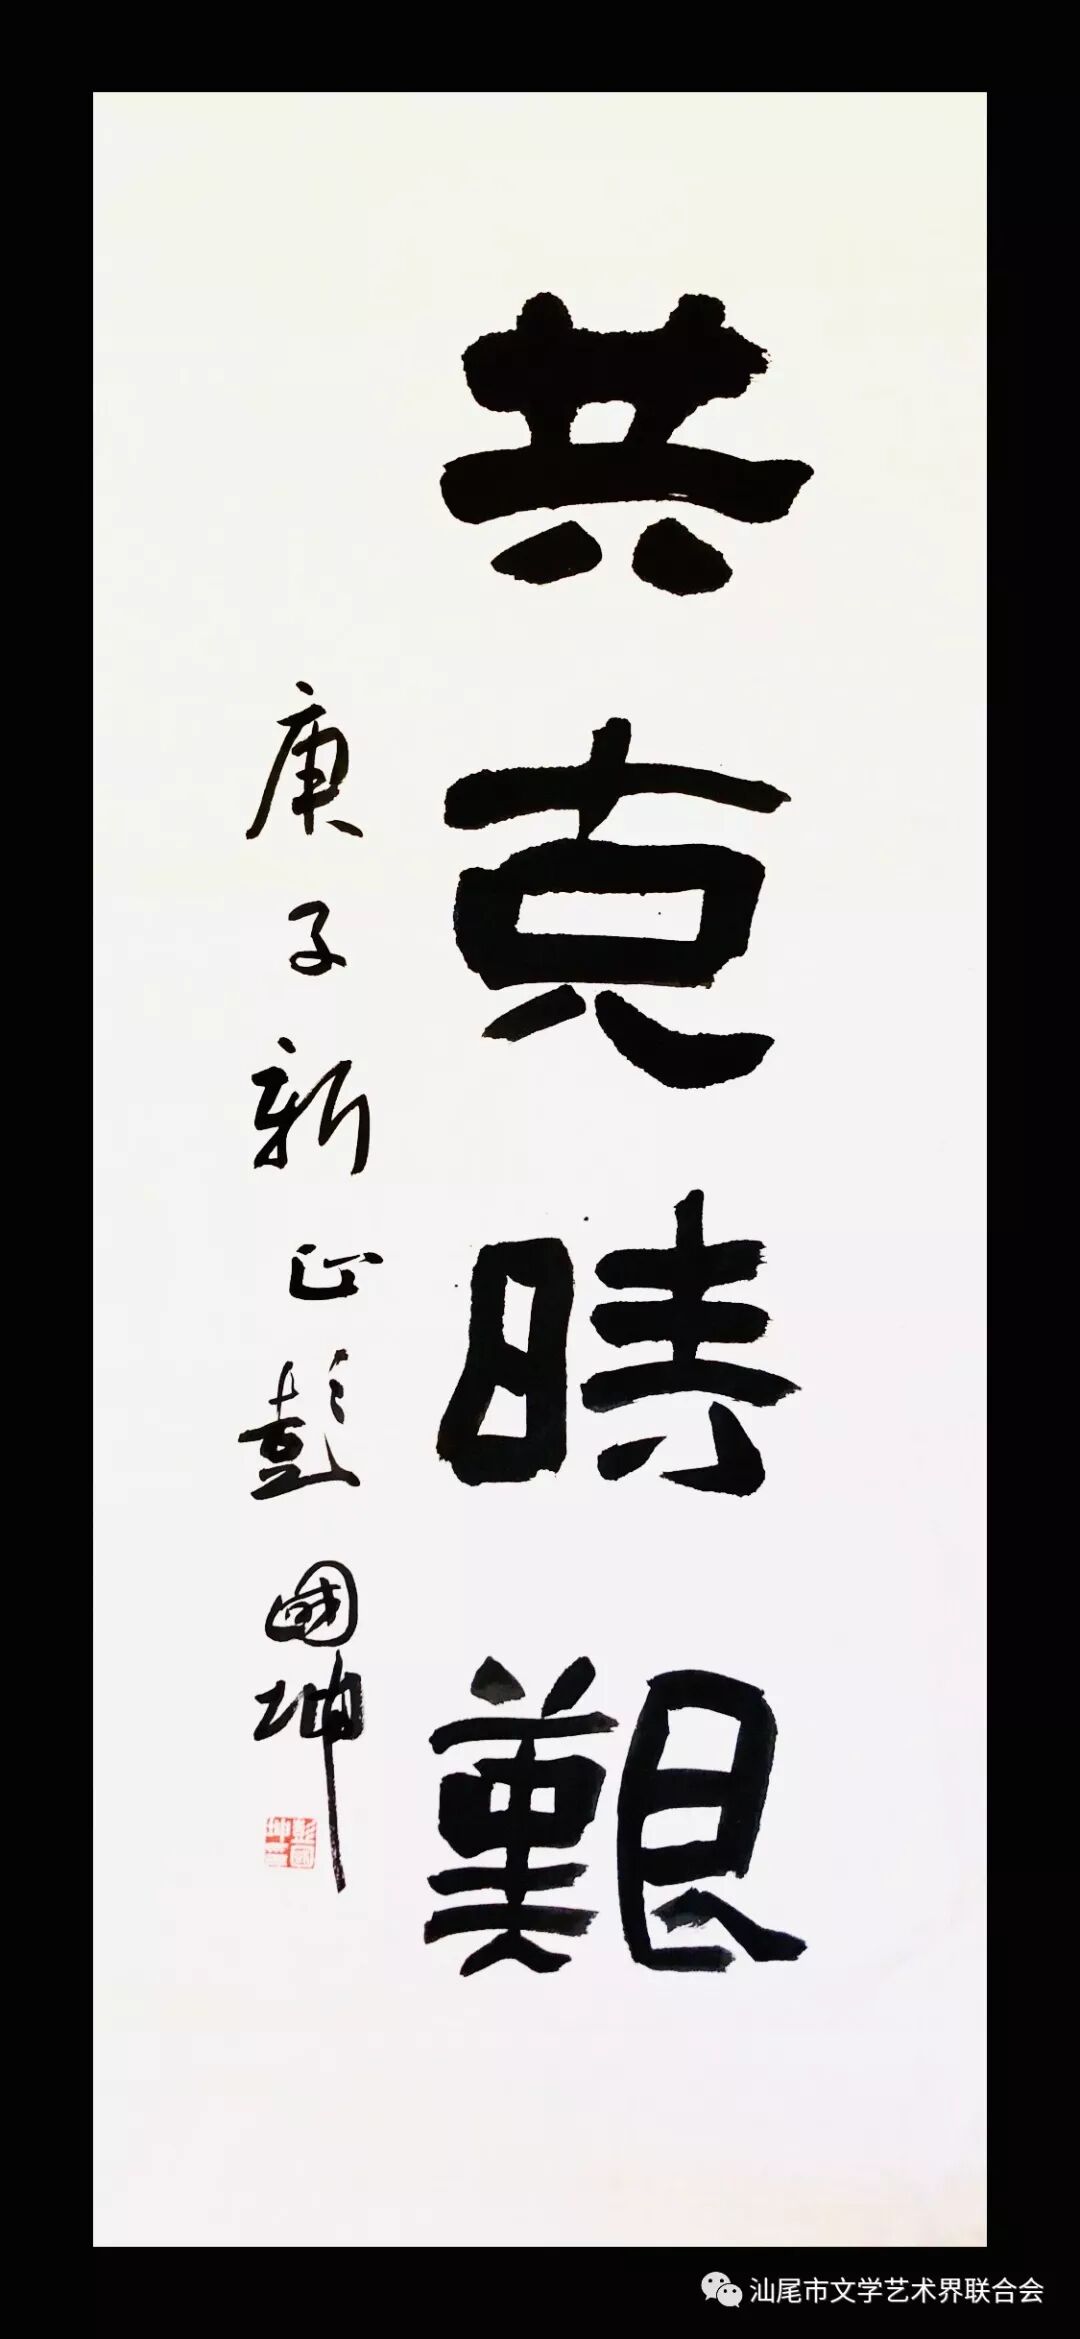 共克時艱
庚子新正彭國坤
彭國坤印
汕尾市文学艺术界联合会